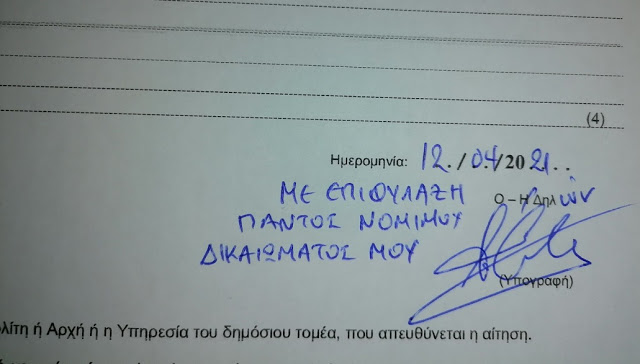 (4)
Ημερομηνία: 12./04/2021..
ΜΕ ΕΠΙΦΥΛΑΞΗ Ο – Η Δηλών
ΠΑΝΤΟΣ ΝΟΜΙΜΟΥ
ΔΙΚΑΙΩΜΑΤΟΣ ΜΟΥ
(Υπογραφή)
ολίτη ή Αρχή ή η Υπηρεσία του δημόσιου τομέα, που απευθύνεται η αίτηση.